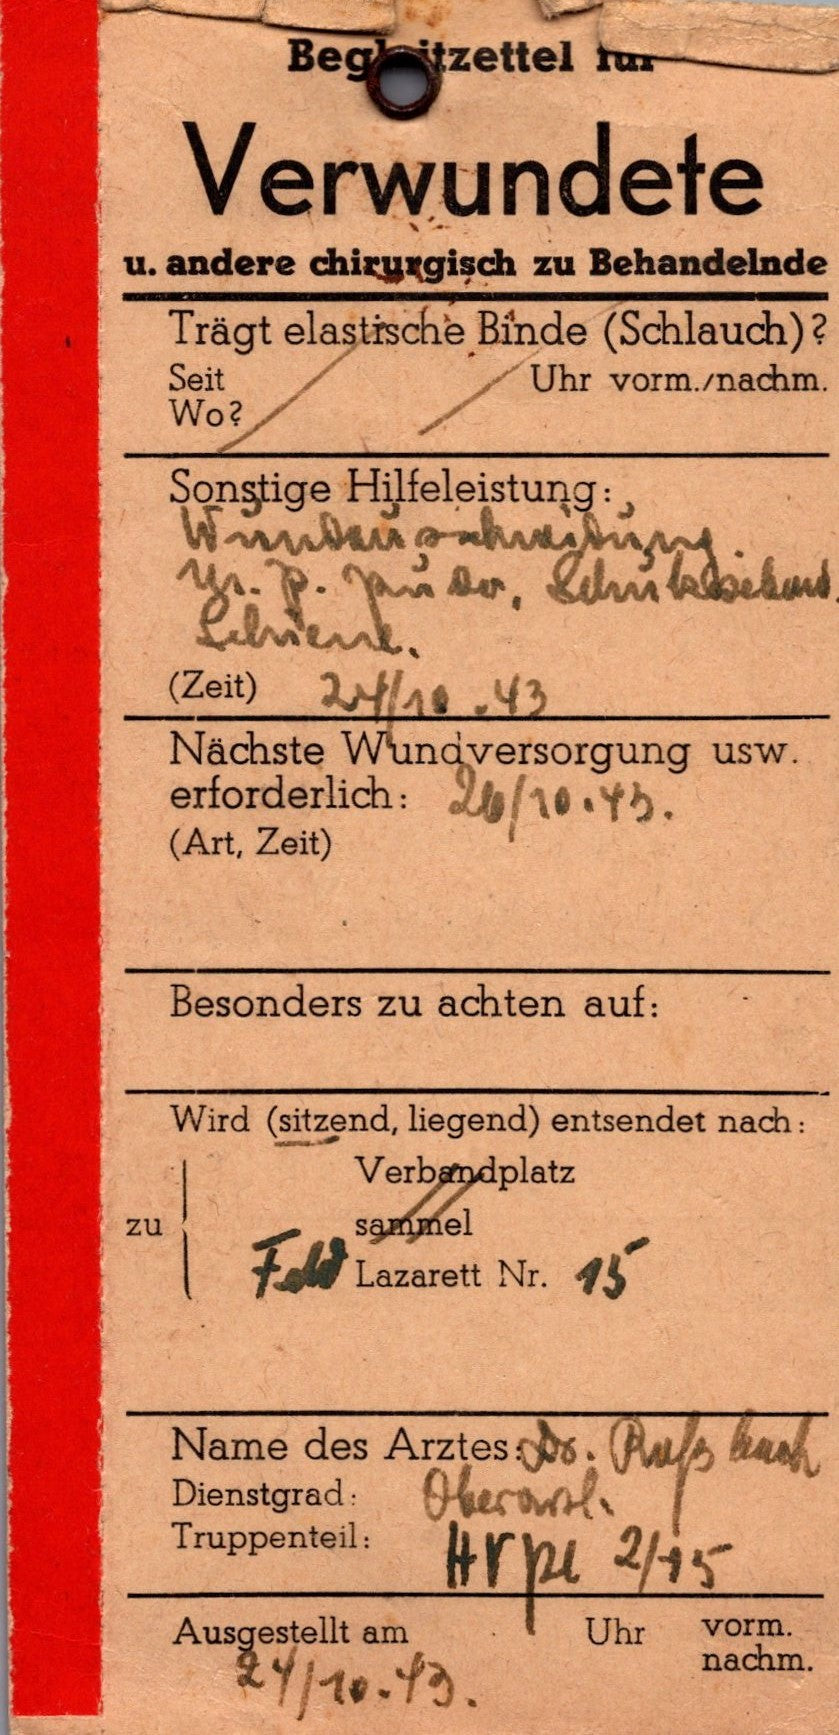 Begleitzettel für
Verwundete
u. andere chirurgisch zu Behandelnde
Trägt elastische Binde (Schlauch)?
Seit Uhr vorm./nachm.
Wo?
Sonstige Hilfeleistung:
Wundausschneidung.
Schiene.
(Zeit) 24/10.43
Nächste Wundversorgung usw.
erforderlich: 26/10.43.
(Art, Zeit)
Besonders zu achten auf:
Wird (sitzend, liegend) entsendet nach:
Verbandplatz
zu sammel
Feld Lazarett Nr. 15
Name des Arztes: Dr.
Dienstgrad: Oberarzt.
Truppenteil: 2/15
Ausgestellt am Uhr vorm.
nachm.
24/10.43.